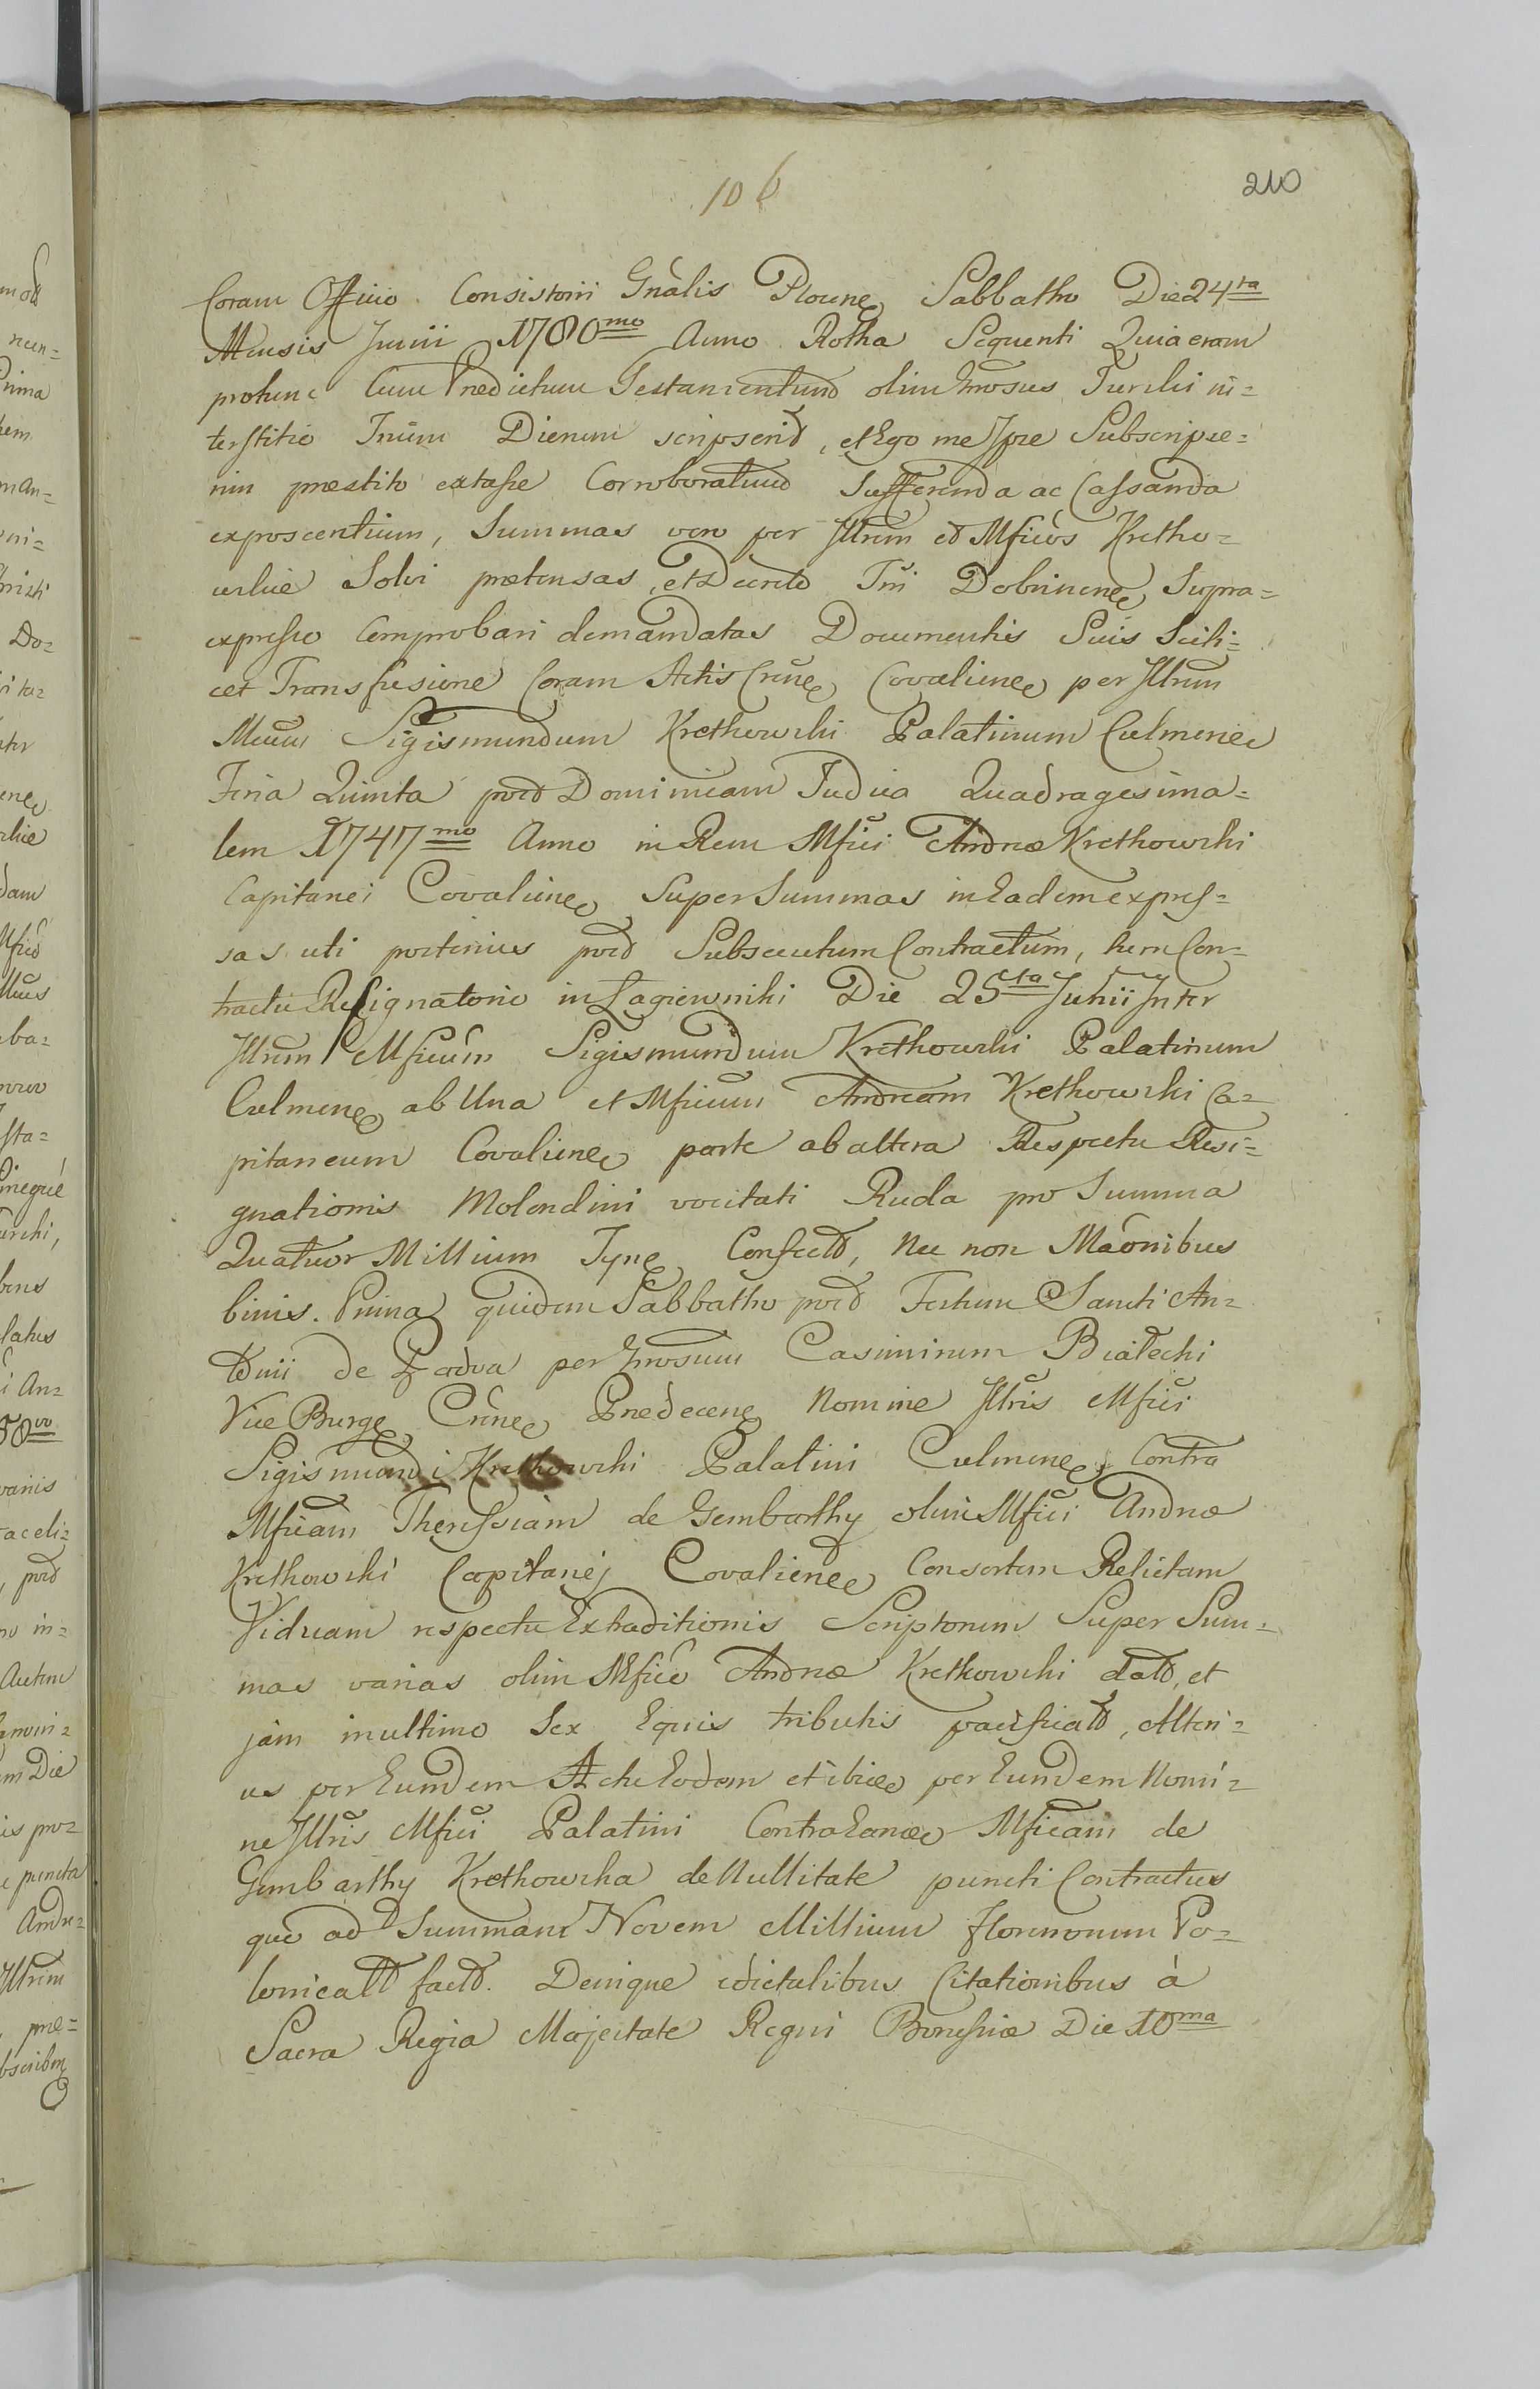 106
210
Coram Officio Consistorii Gnâlis Plocnẽ Sabbatho Die 24ta
Mensis Junii 1780mo Anno Rotha Sequenti Quia eram
protunc Cum Prædictum Testamentum olim Grosus Turski in=
terstitio Trium Dierum scripserit, et Ego me Ipse Subscripse=
rim præstito extasse Corroboratum Sufferenda ac Cassanda
exposcentium, Summas vero per Illrem et Mficos Kretko=
wskie Solvi prætensas, et Decreto Trii Dobrinenẽ Supra=
expresso Comprobari demandatas Documentis Suis Scili=
cet Transfusione Coram Actis Crenẽ Covaliensẽ per Illrem
Mcum Sigismundum Krethowski Palatinum Culmenẽ
Feria Quinta post Dominicam Judica Quadragesima=
lem 1747mo Anno in Rem Mfici Andræ Krethowski
Capitanei Covalienẽ Super Summas in Eadem expres=
sas uti potenus post Subsecutum Contractum, tum Con=
tractu Resignatorio in Łagiewniki Die 25cta Junii Inter
Illrem Mficum Sigismundum Krethowski Palatinum
Culmenẽ ab Una et Mficum Andream Krethowski Ca=
pitaneum Covalienẽ parte ab altera Respectu Resi=
gnationis Molendini vocitati Ruda pro Summa
Quatuor Millium Tynẽ Confect, Nec non Maônibus
binis. Prima quidem Sabbatho post Festum Sancti An=
tonii de Padva per Grosum Casimirum Białecki
Vice Burgẽ Crenẽ Prædecenẽ Nomine Illris Mfici
Sigismundi Krethowski Palatini Culmenẽ, Contra
Mficam Theressiam de Gembarthy olim Mfici Andræ
Krethowski Capitanej Covalienẽ Consortem Relictam
Viduam respectu Extraditionis Scriptorum Super Sum=
mas varias olim Mfico Andræ Krethowski dat, et
jam in ultimo Sex Equis tributis pacificat, Alteri=
us per Eundem Actu Eodem et ibidẽ per Eundem Nomi=
ne Illris Mfici Palatini Contra Eandẽ Mficam de
Gembarthy Krethowska de Nullitate puncti Contractus
quo ad Summam Novem Millium florenorum Po=
lonicalt fact. Denique edictalibus Citationibus à
Sacra Regia Majestate Regni Borussiæ Die 10ma